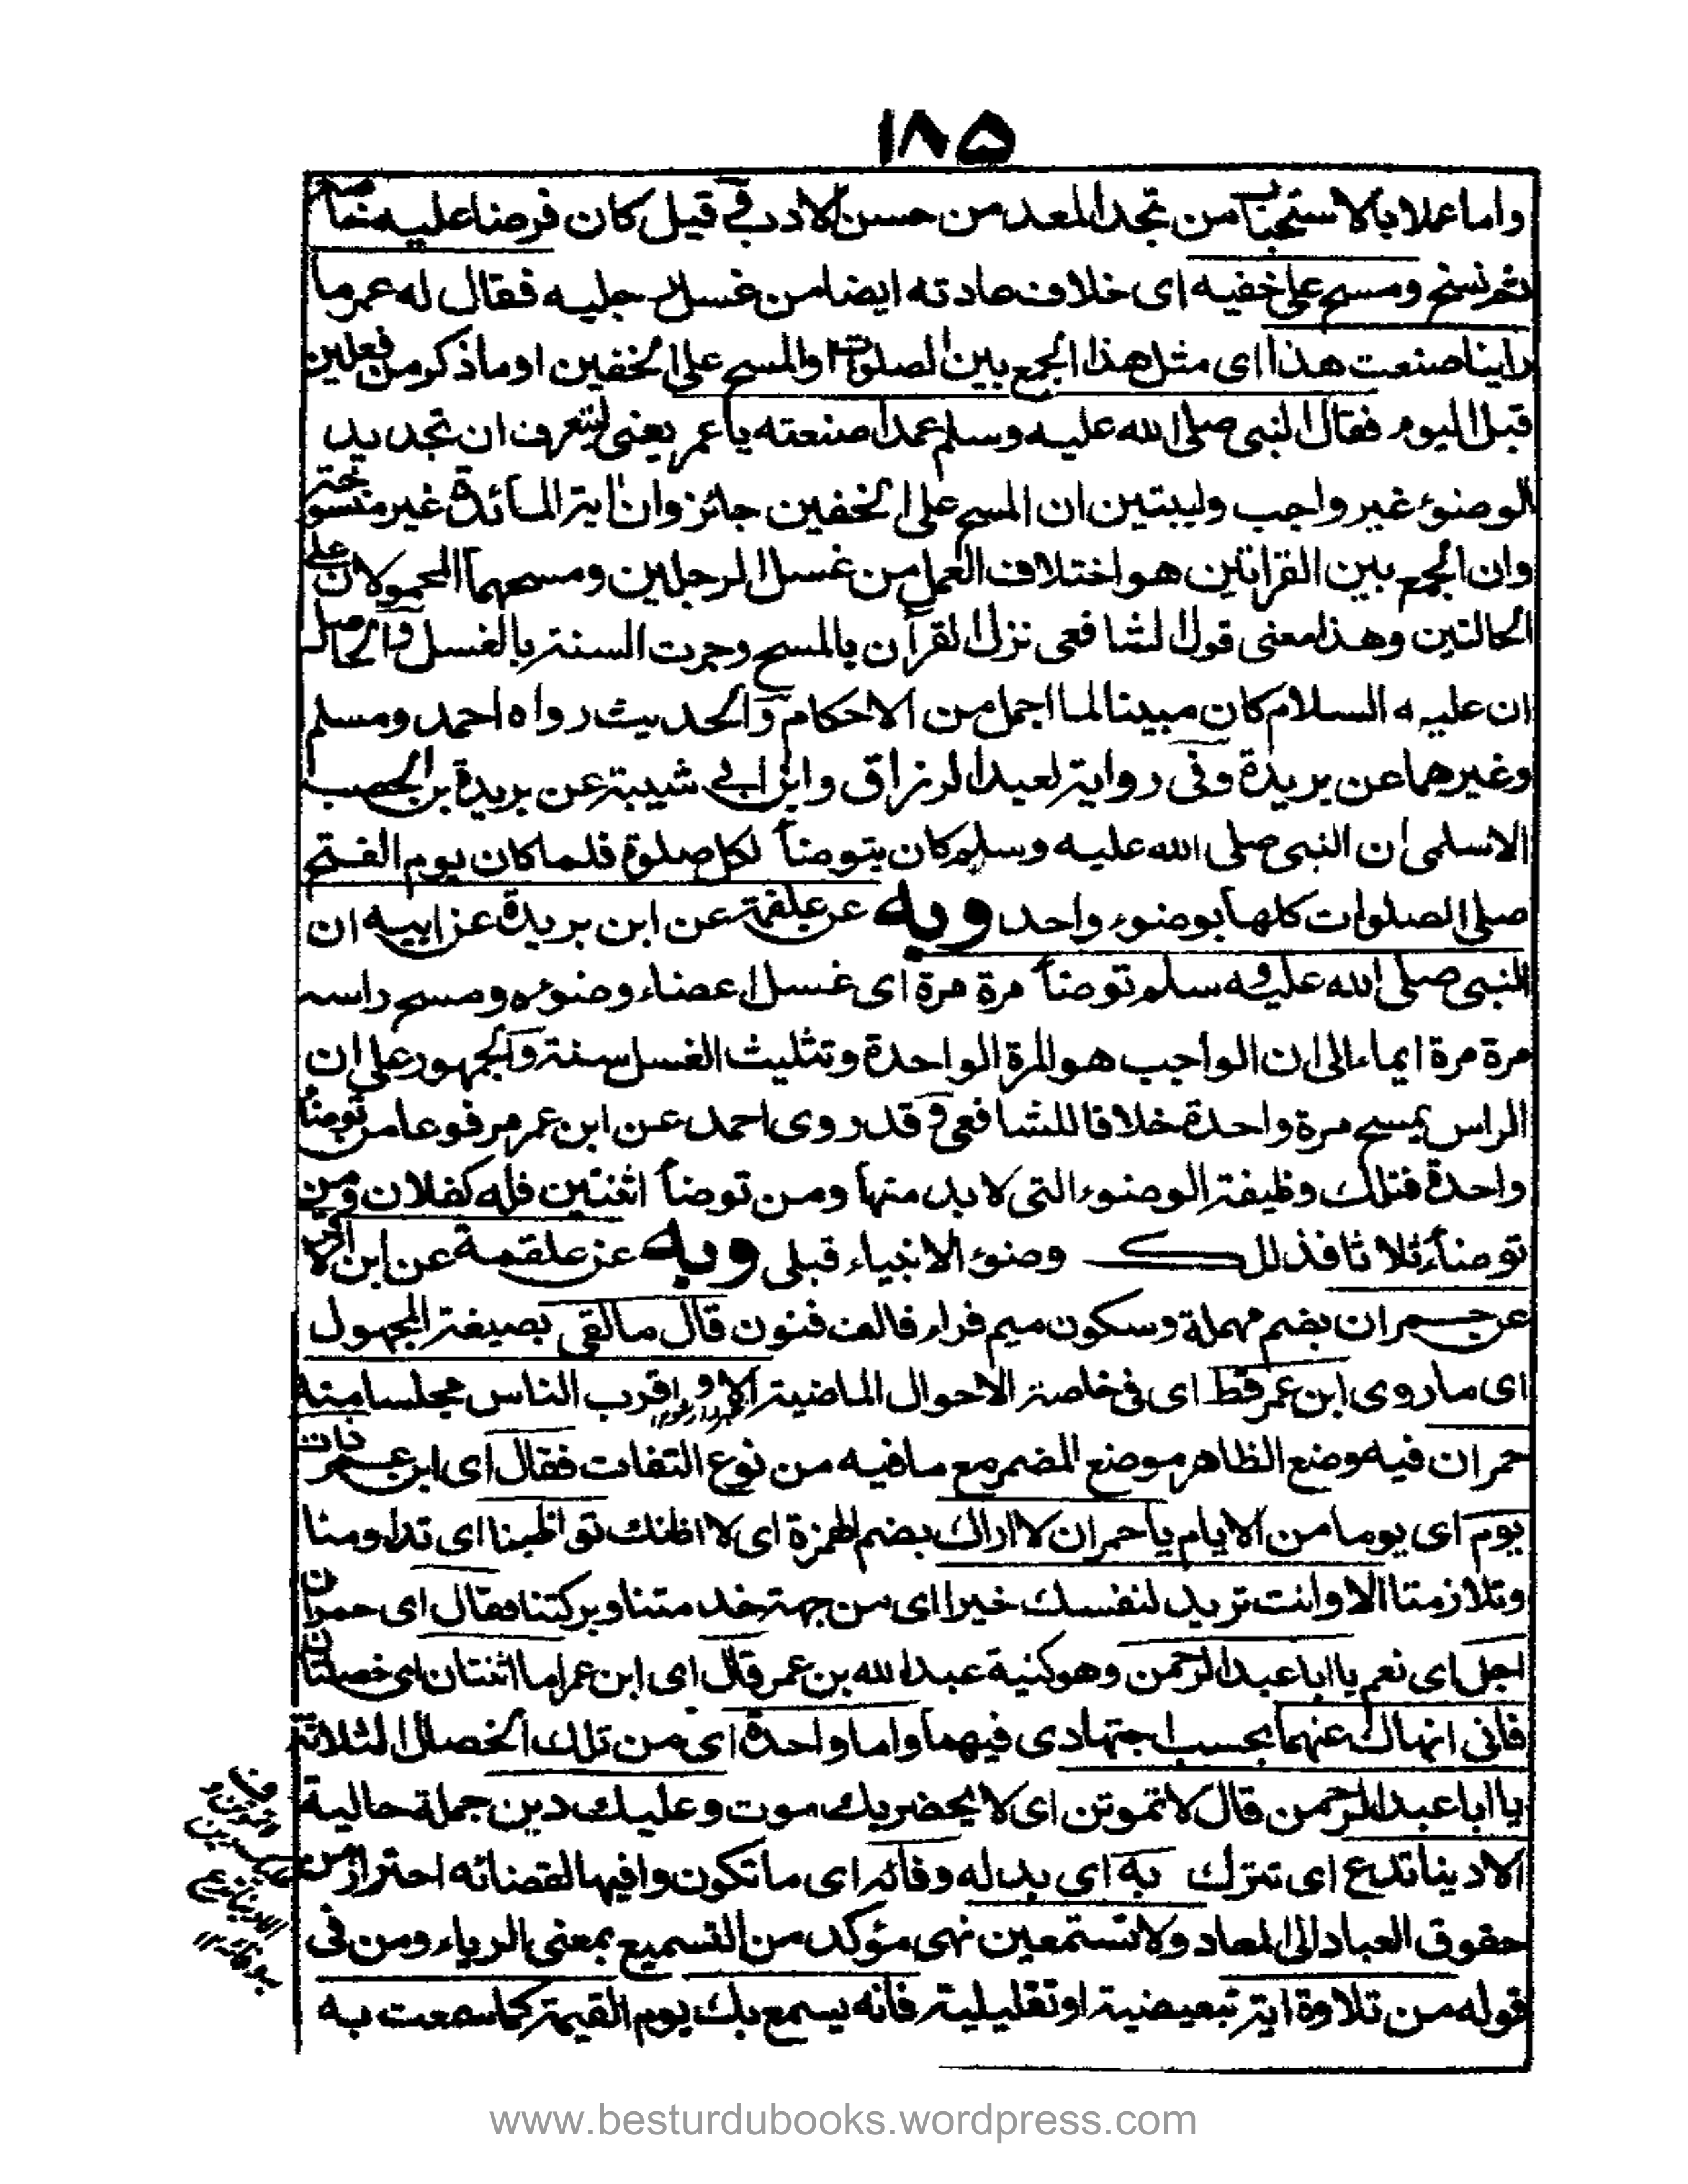 ١٨٥
واما عملا بالاستحباب من تجد المعد من حسن الادب وقيل كان فرضا عليه خاصة
ثم نسخ ومسح على خفيه اى خلاف عادته ايضا من غسل رجليه فقال له عمر ما
رايناك صنعت هذا اى مثل هذا الجمع بين الصلوات او المسح على الخفين او ما ذكر من فعلين
قبل اليوم فقال النبى صلى الله عليه وسلم عمدا صنعته يا عمر يعنى لتعرف ان تجديد
الوضوء غير واجب وليبتين ان المسح على الخفين جائز وان اية المائدة غير منسوخة
وان الجمع بين القرائتين هو اختلاف العمل من غسل الرجلين ومسحهما المحمولان على
الحالتين وهذا معنى قول الشافعى نزل القرآن بالمسح وجرت السنة بالغسل والحاصل
ان عليه السلام كان مبينا لما اجمل من الاحكام والحديث رواه احمد ومسلم
وغيرهما عن بريدة وفى رواية لعبد الرزاق وابن ابى شيبة عن بريدة بن الحصيب
الاسلمى ان النبى صلى الله عليه وسلم كان يتوضأ لكل صلوة فلما كان يوم الفتح
صلى الصلوات كلها بوضوء واحد وبه عن علقمة عن ابن بريدة عن ابيه ان
النبى صلى الله عليه وسلم توضأ مرة مرة اى غسل اعضاء وضوءه ومسح راسه
مرة مرة ايماء الى ان الواجب هو المرة الواحدة وتثليث الغسل سنة والجمهور على ان
الراس يمسح مرة واحدة خلافا للشافعى وقد روى احمد عن ابن عمر مرفوعا من توضأ
واحدة فتلك وظيفة الوضوء التى لا بد منها ومن توضأ اثنتين فله كفلان ومن
توضأ ثلاثا فذلك وضوء الانبياء قبلى وبه عن علقمة عن ابن الاقمر
عن حمران بضم مهملة وسكون ميم فراء فالف فنون قال ما لقى بصيغة المجهول
اى ما روى ابن عمر قط اى فى خاصة الاحوال الماضية الا و اقرب الناس مجلسا منه
حمران فيه وضع الظاهر موضع المضمر مع ما فيه من نوع التفات فقال اى ابن عمر ذات
يوم اى يوما من الايام يا حمران لا اراك بضم الهمزة اى لا اظنك تواظبنا اى تداومنا
وتلازمنا الا وانت تريد لنفسك خيرا اى من جهة خدمتنا وبركتنا فقال اى حمران
اجل اى نعم يا ابا عبد الرحمن وهو كنية عبد الله بن عمر قال اى ابن عمر اما اثنتان اى خصلتان
فانى انهاك عنهما بحسب اجتهادى فيهما واما واحدة اى من تلك الخصال الثلاثة
يا ابا عبد الرحمن قال لا تموتن اى لا يحضر بك موت وعليك دين جملة حالية
الا دينا تدع اى تترك به اى بدله وفائه اى ما تكون وافيها لقضائه احترازا من
حقوق العباد الى المعاد ولا تستمعين نهى مؤكد من التسميع بمعنى الرياء ومن فى
قوله من تلاوة اية تبعيضية او تقليلية فانه يسمع بك يوم القيمة كما سمعت به
www.besturdubooks.wordpress.com